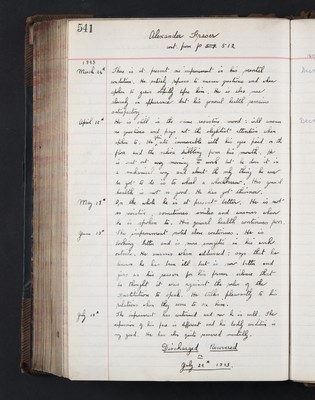 541
Alexander Fraser
cont. from fo 512
1913
March 24th There is at present no improvement in his mental
condition. He entirely refuses to answer questions and when
spoken to gazes before him. He is also more
slovenly in appearance but his general health remains
satisfactory.
April 21st He is still in the same resistive mood: will answer
no questions and pays not the slightest attention when
spoken to. He sits immovable with his eyes fixed on the
floor and the saliva dribbling from his mouth. He
is sent out every morning to work but he does it in
a mechanical way and about the only thing he can
be got to do is to wheel a wheelbarrow. His general
health is not so good. He has got thinner.
May 18th On the whole he is at present better. He is not
so resistive, sometimes smiles and answers when
he is spoken to. His general health continues poor.
June 15th The improvement noted above continues. He is
looking better and is more energetic in his work
outside. He answers when addressed; says that he
knows he has been ill but is now better and
gives as his reason for his former silence that
he thought it was against the rules of the
Institution to speak. He talks pleasantly to his
relatives when they come to see him.
July 14th The improvement has continued and now he is well. The
expression of his face is different and his bodily condition is
very good. He has also quite recovered mentally.
Discharged Recovered
on
July 21st 1913.